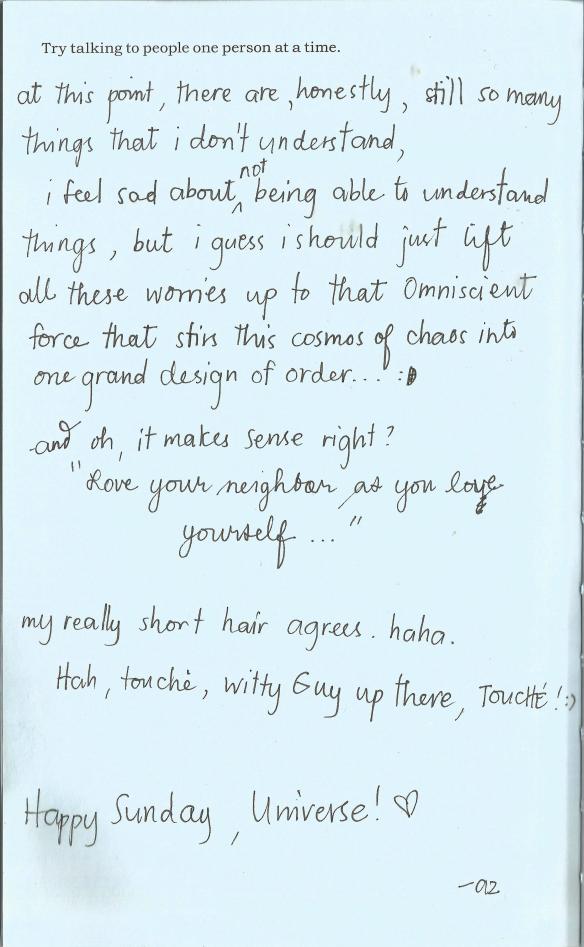 Try talking to people one person at a time.
at this point, there are, honestly, still so many
things that i don't understand,
i feel sad about not being able to understand
things, but i guess i should just lift
all these worries up to that Omniscient
force that stirs this cosmos of chaos into
one grand design of order... :D
and oh, it makes sense right?
"Love your neighbor as you love
yourself ..."
my really short hair agrees. haha.
Hah, touchè, witty Guy up there, TOUCHÉ! :)
Happy Sunday, Universe! ♡
-az